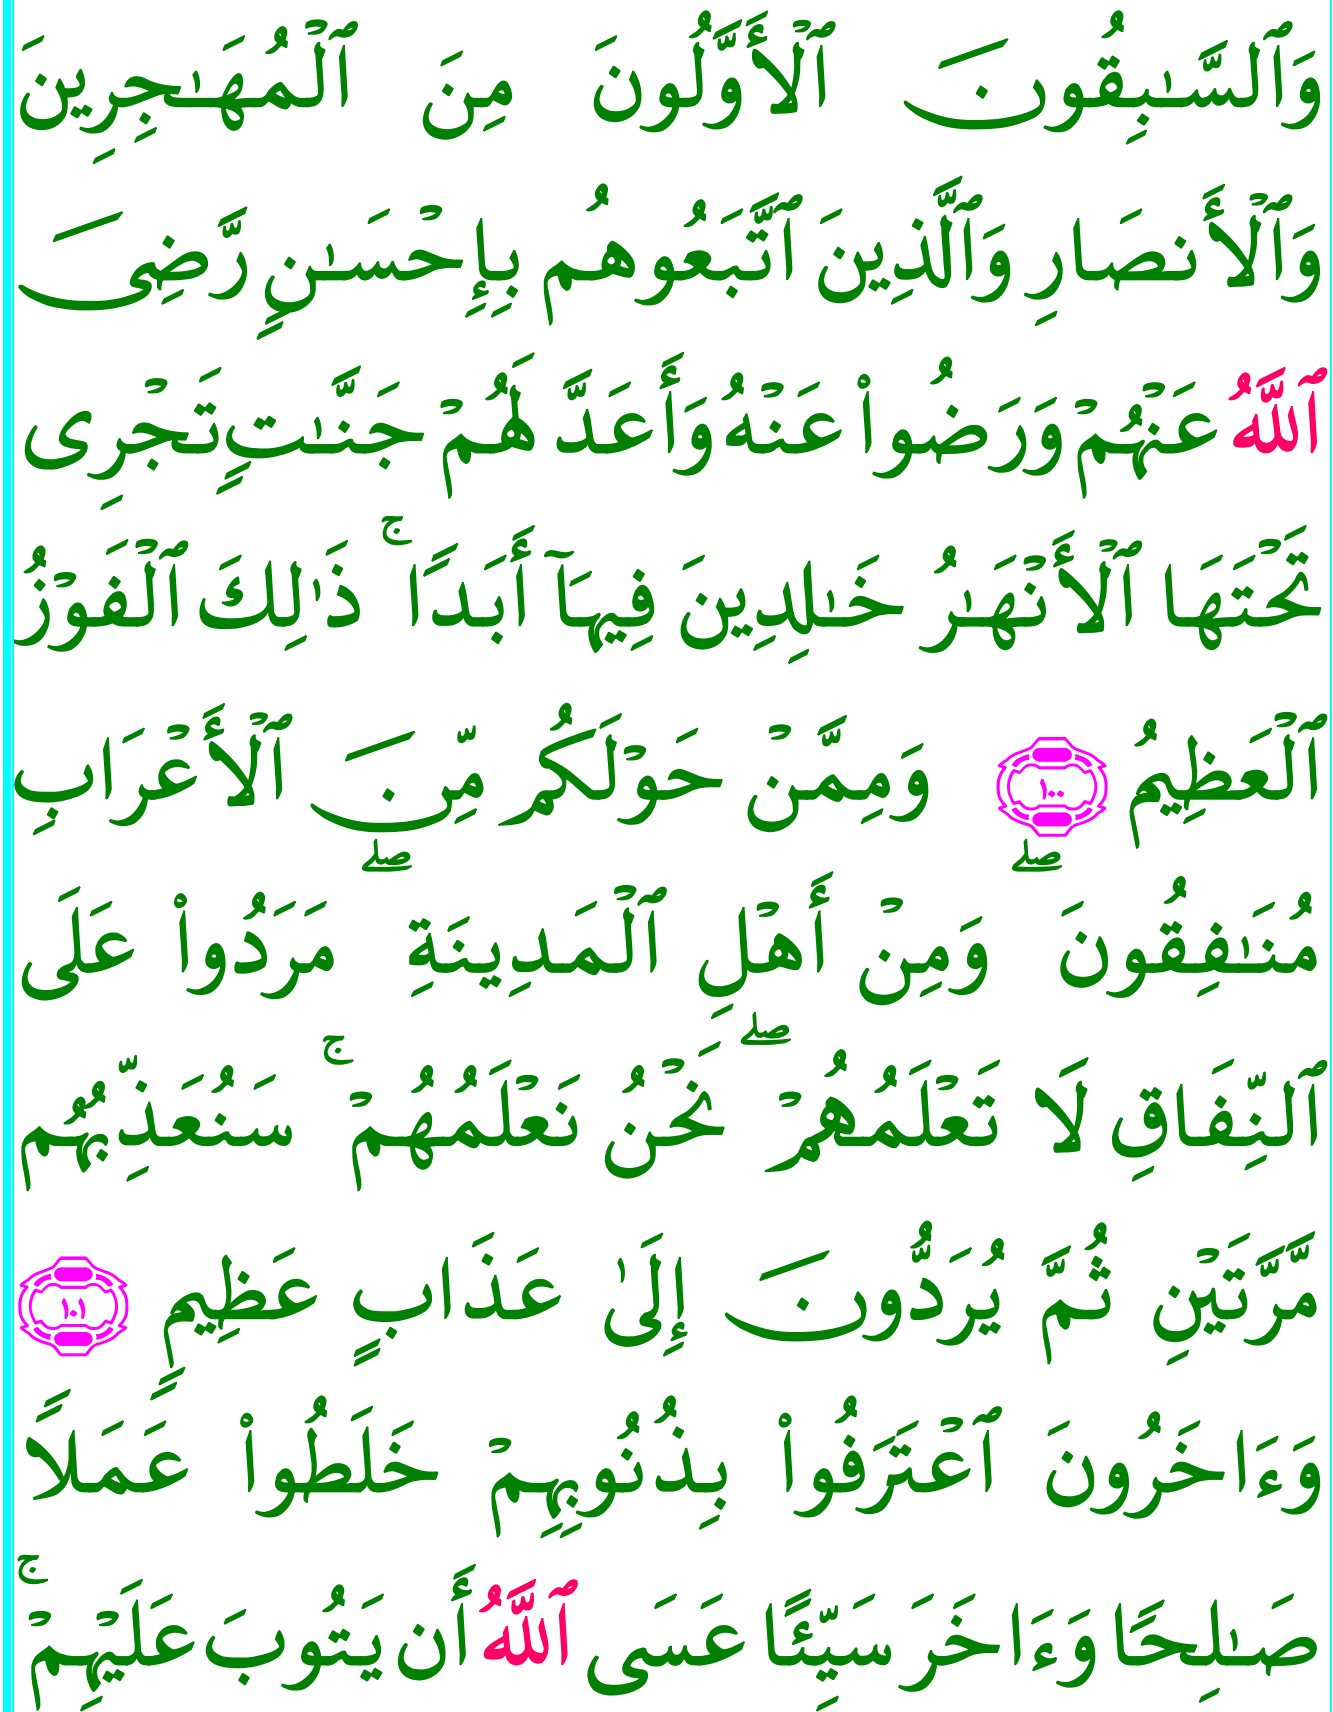 وَٱلسَّـٰبِقُونَ ٱلْأَوَّلُونَ مِنَ ٱلْمُهَـٰجِرِينَ
وَٱلْأَنصَارِ وَٱلَّذِينَ ٱتَّبَعُوهُم بِإِحْسَـٰنٍ رَّضِىَ
ٱللَّهُ عَنْهُمْ وَرَضُوا۟ عَنْهُ وَأَعَدَّ لَهُمْ جَنَّـٰتٍ تَجْرِى
تَحْتَهَا ٱلْأَنْهَـٰرُ خَـٰلِدِينَ فِيهَآ أَبَدًا ۚ ذَٰلِكَ ٱلْفَوْزُ
ٱلْعَظِيمُ ١٠٠ وَمِمَّنْ حَوْلَكُم مِّنَ ٱلْأَعْرَابِ
مُنَـٰفِقُونَ ۖ وَمِنْ أَهْلِ ٱلْمَدِينَةِ ۖ مَرَدُوا۟ عَلَى
ٱلنِّفَاقِ لَا تَعْلَمُهُمْ ۖ نَحْنُ نَعْلَمُهُمْ ۚ سَنُعَذِّبُهُم
مَّرَّتَيْنِ ثُمَّ يُرَدُّونَ إِلَىٰ عَذَابٍ عَظِيمٍ ١٠١
وَءَاخَرُونَ ٱعْتَرَفُوا۟ بِذُنُوبِهِمْ خَلَطُوا۟ عَمَلًا
صَـٰلِحًا وَءَاخَرَ سَيِّئًا عَسَى ٱللَّهُ أَن يَتُوبَ عَلَيْهِمْ ۚ